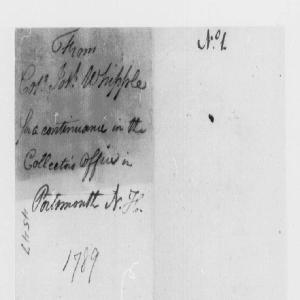 From
Colo. Jos. Whipple
for a continuance in the
Collector's Office in
Portsmouth N. H.
1789
No. 1.